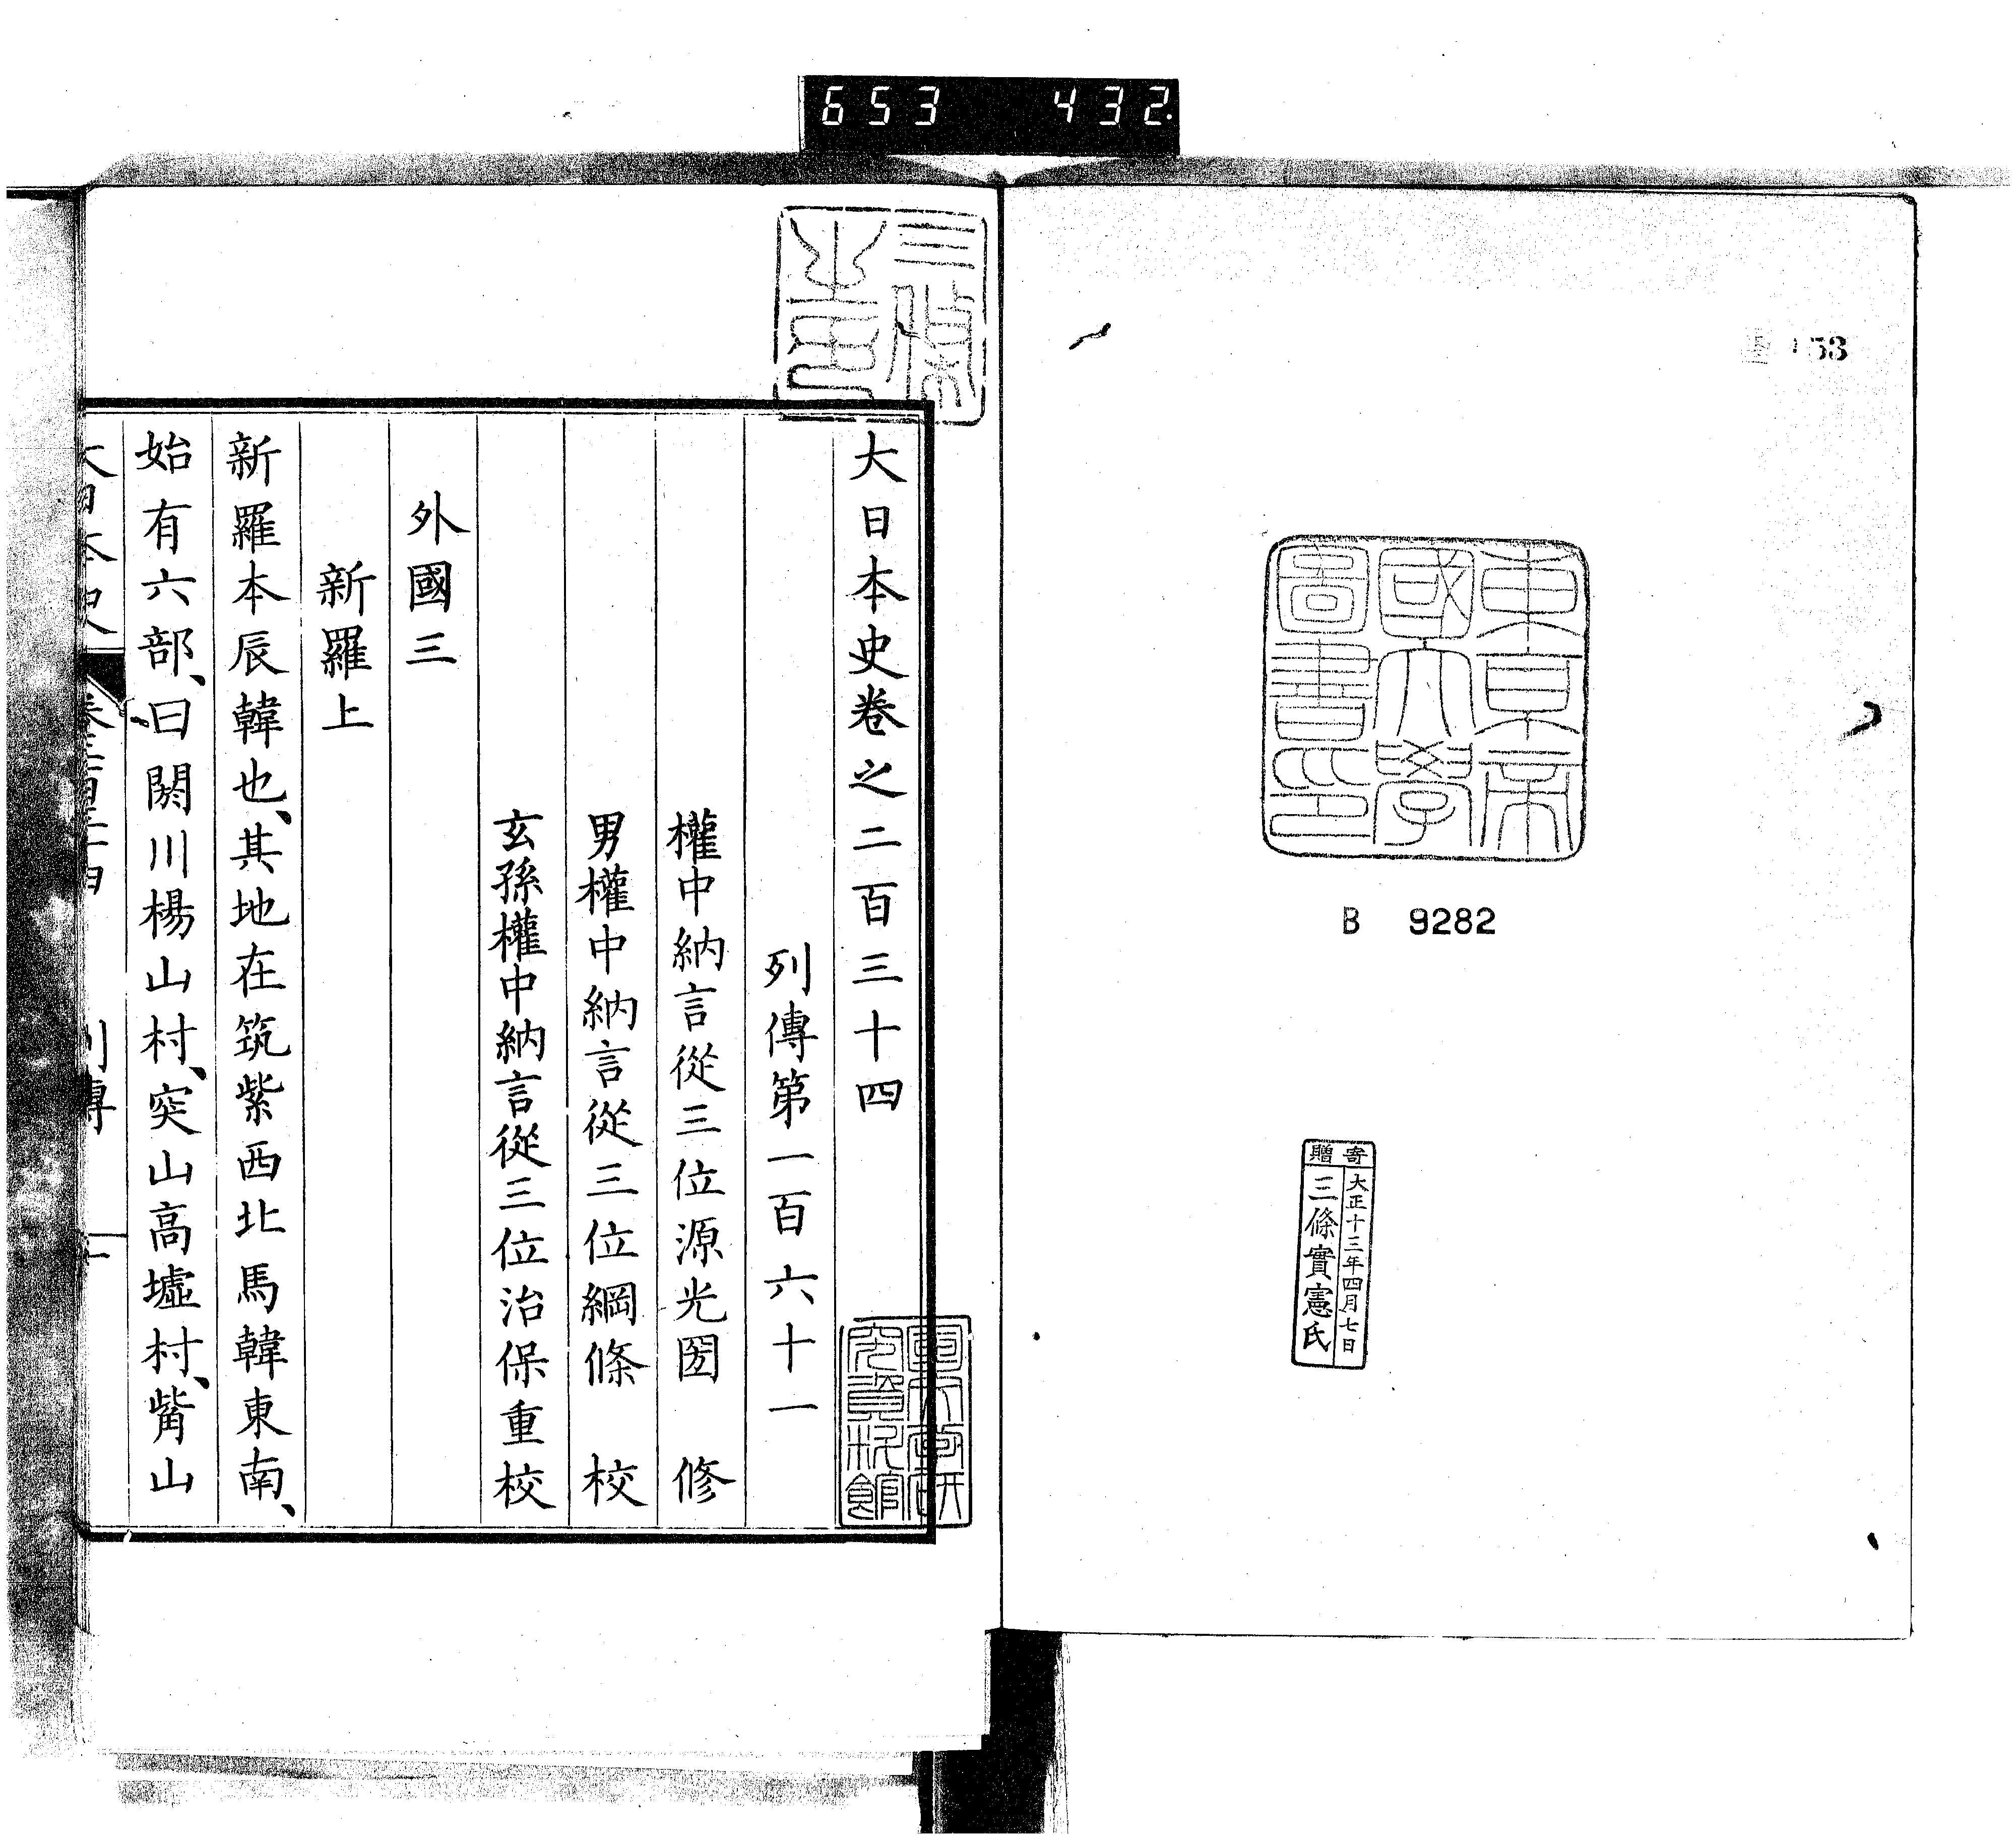 653 432
53
東京帝
國大學
圖書印
B 9282
寄贈
大正十三年四月七日
三條實憲氏
三條
大日本史卷之二百三十四
列傳第一百六十一
權中納言從三位源光圀 修
男權中納言從三位綱條 校
玄孫權中納言從三位治保重校
外國三
新羅上
新羅本辰韓也、其地在筑紫西北馬韓東南、
始有六部、曰閼川楊山村、突山高墟村、觜山
大日本史 卷二百三十四 列傳 一